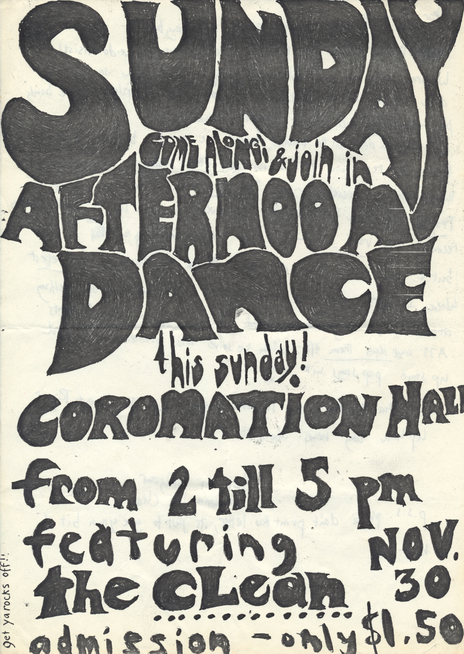 SUNDAY
COME ALONG! & join in
AFTERNOON
DANCE
this sunday!
CORONATION HALL
from 2 till 5 pm
featuring NOV.
the cLean 30
admission - only $1.50
get ya rocks off!!